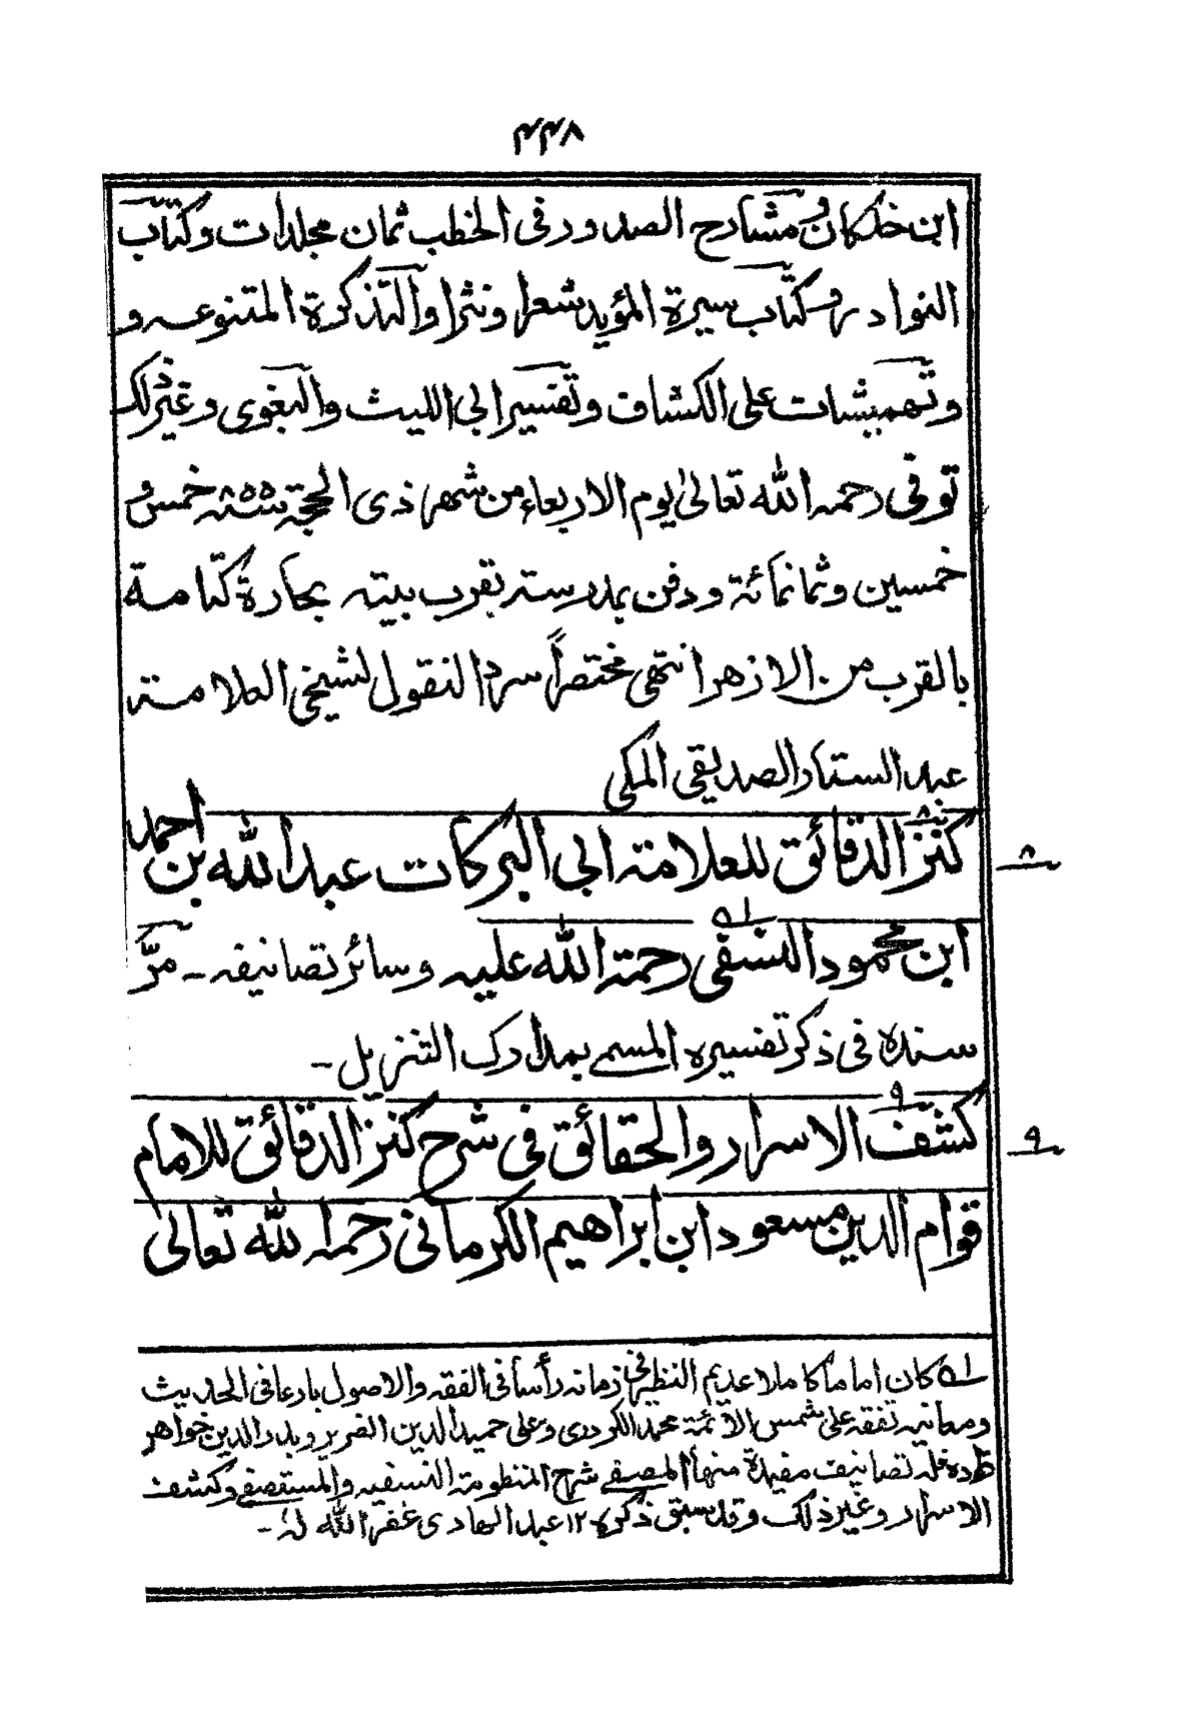 ۴۴۸
ابن خلكان ومشارح الصدور فى الخطب ثمان مجلدات وكتاب
النوادر وكتاب سيرة المؤيد شعرا ونثرا والتذكرة المتنوعه و
وتهميشات على الكشاف وتفسير ابى الليث والبغوى وغير ذلك
توفى رحمه الله تعالىٰ يوم الاربعاء من شهر ذى الحجة سنة ٨٥٥ خمس و
خمسين وثمانمائة ودفن بمدرسته بقرب بيته بحارة كتامة
بالقرب من الازهر انتهى مختصراً سرد النقول لشيخى العلامة
عبد الستار الصديقى المكى
٨ كنز الدقائق للعلامة ابى البركات عبد الله بن احمد
ابن محمود النسفى رحمة الله عليه وسائر تصانيفه ـ مرّ
سنده فى ذكر تفسيره المسمے بمدارك التنزيل ـ
٩ كشف الاسرار والحقائق فى شرح كنز الدقائق للامام
قوام الدين مسعود ابن ابراهيم الكرمانى رحمه الله تعالىٰ
ا ه كان اماما كاملا عديم النظير فى زمانه رأسا فى الفقه والاصول بارعا فى الحديث
ومعانيه تفقه على شمس الائمة محمد الكردرى وعلى حميد الدين الضرير وبدر الدين خواهر
زاده فله تصانيف مفيدة منها المصفے شرح المنظومة النسفيه والمستصفے وكشف
الاسرار وغير ذلك وقد سبق ذكره ١٢ عبد الهادى غفر الله لهٗ ـ